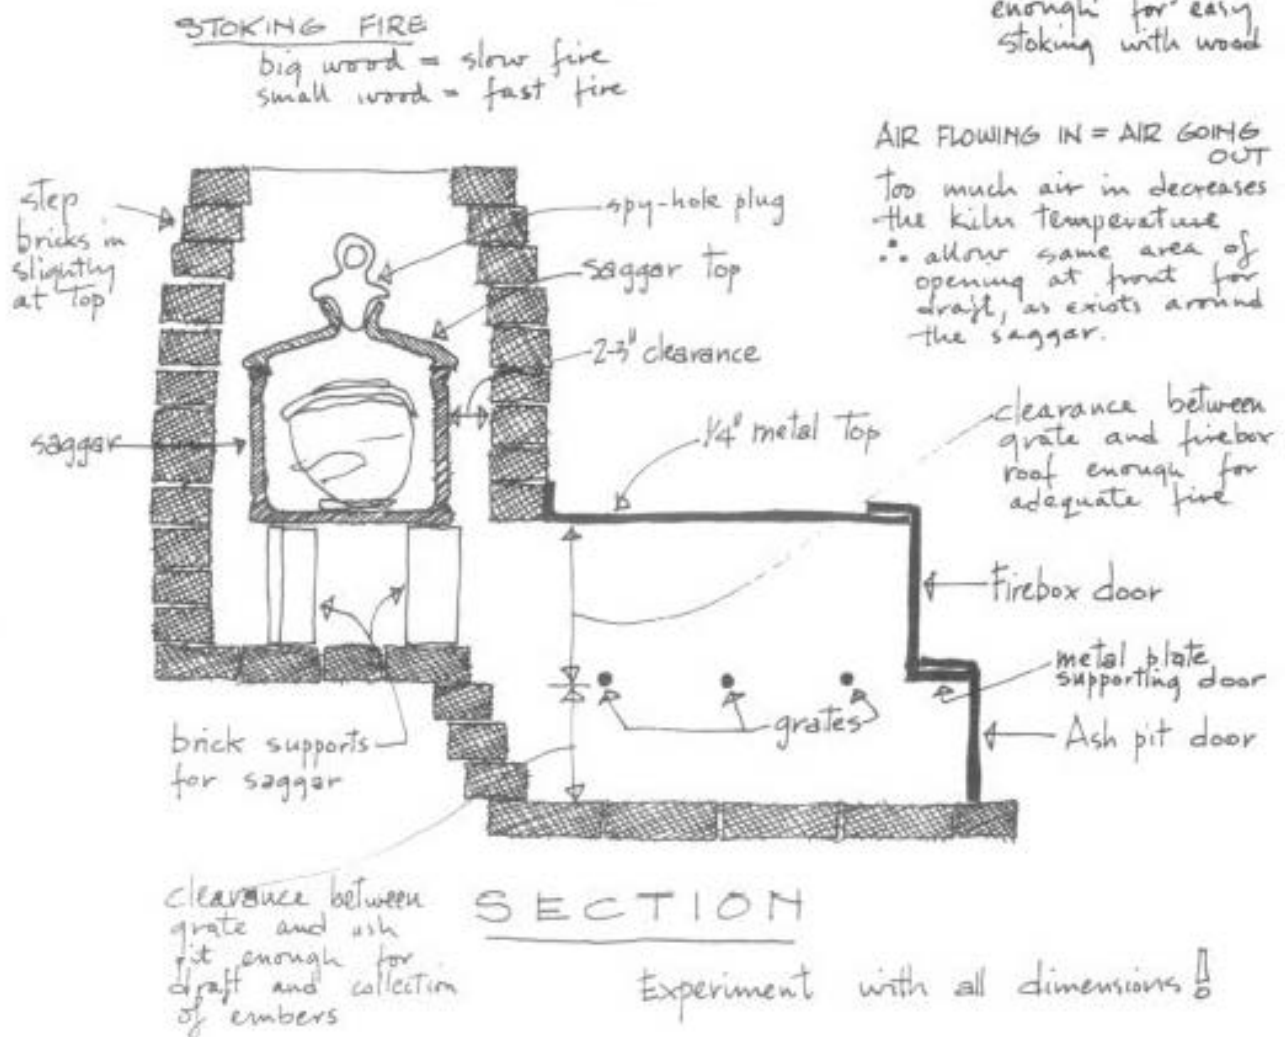 STOKING FIRE
big wood = slow fire
small wood = fast fire
enough for easy
stoking with wood
AIR FLOWING IN = AIR GOING
OUT
too much air in decreases
the kiln temperature
∴ allow same area of
opening at front for
draft, as exists around
the saggar.
step
bricks in
slightly
at top
spy-hole plug
saggar top
2-3" clearance
saggar
1/4" metal top
clearance between
grate and firebox
roof enough for
adequate fire
Firebox door
metal plate
supporting door
grates
Ash pit door
brick supports
for saggar
clearance between
grate and ash
pit enough for
draft and collection
of embers
SECTION
Experiment with all dimensions!